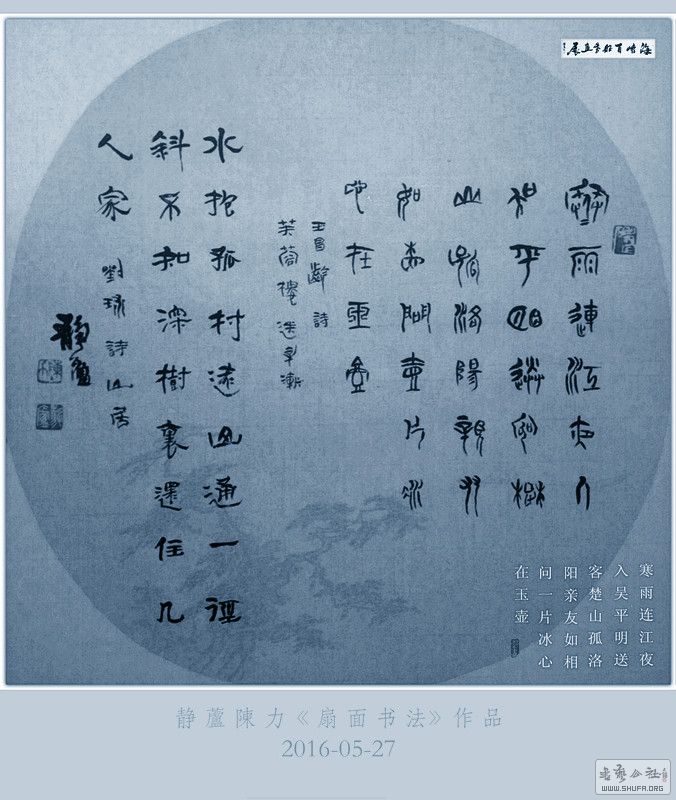 寒雨連江夜入
吳平明送客楚
山孤洛陽親友
如相問壹片冰
心在玉壺
王昌齡詩
芙蓉樓送辛漸
水抱孤村遠山通一徑
斜不知深樹裏還住几
人家
劉球詩山居
靜廬
寒雨连江夜
入吴平明送
客楚山孤洛
阳亲友如相
问一片冰心
在玉壶
静蘆陳力《扇面书法》作品
2016-05-27
书艺公社
WWW.SHUFA.ORG